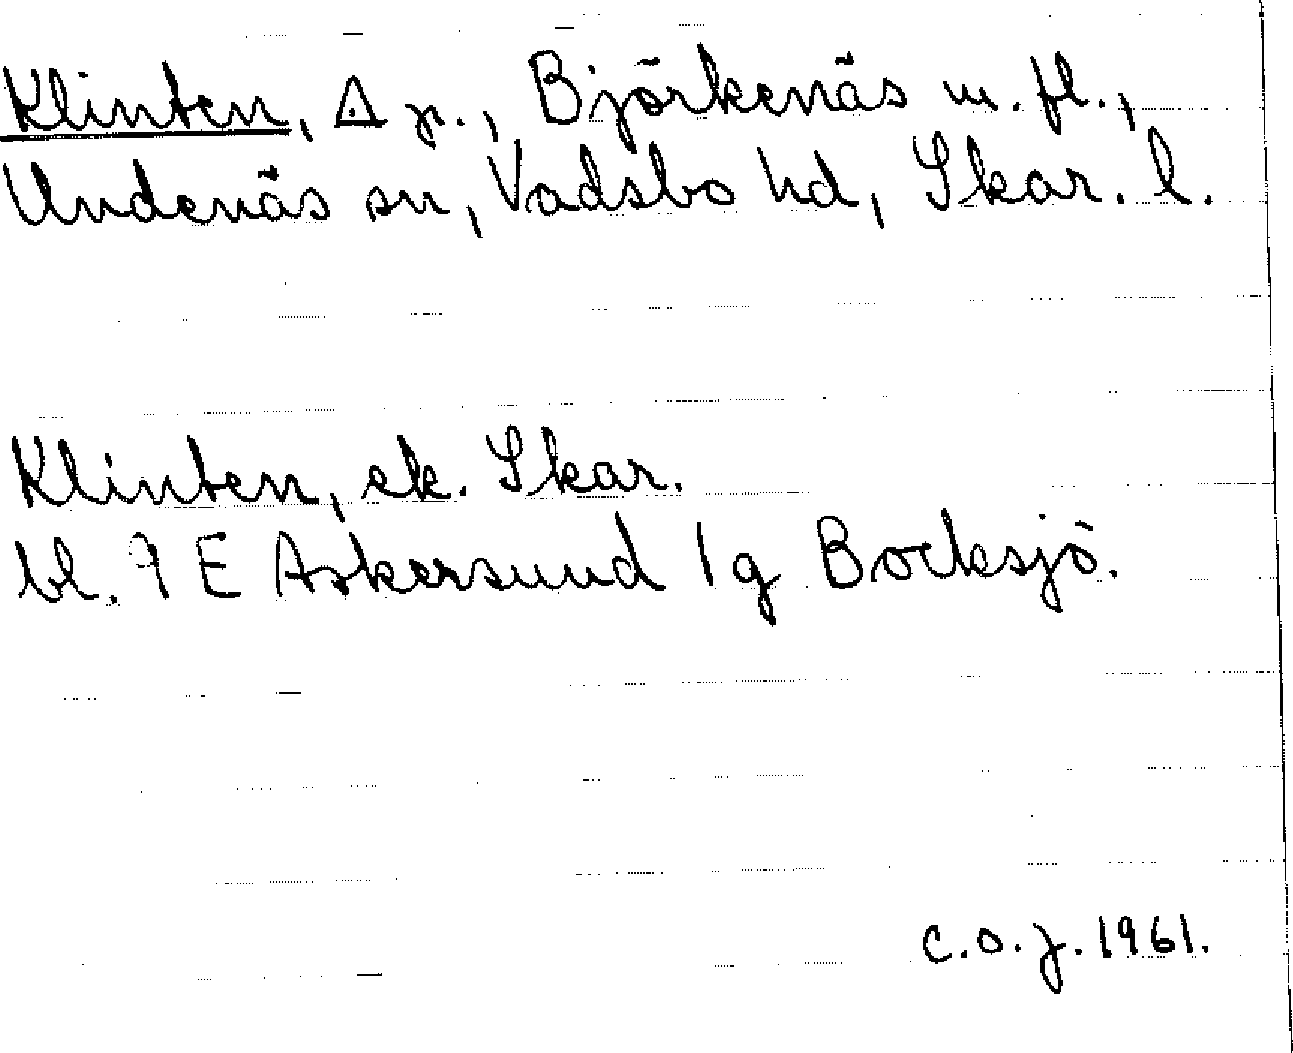 Klinten, Δ p., Björkenäs m. fl.,
Undenäs sn, Vadsbo hd, Skar. l.
Klinten, ek. Skar.
bl. 9 E Askersund 1g Bocksjö.
C.O.J. 1961.